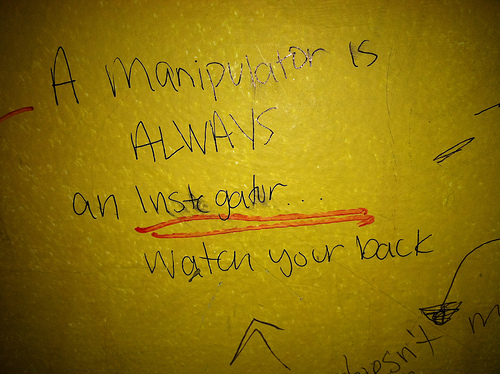 A Manipulator is
ALWAYS
an Instegator...
Watch your back
doesn't